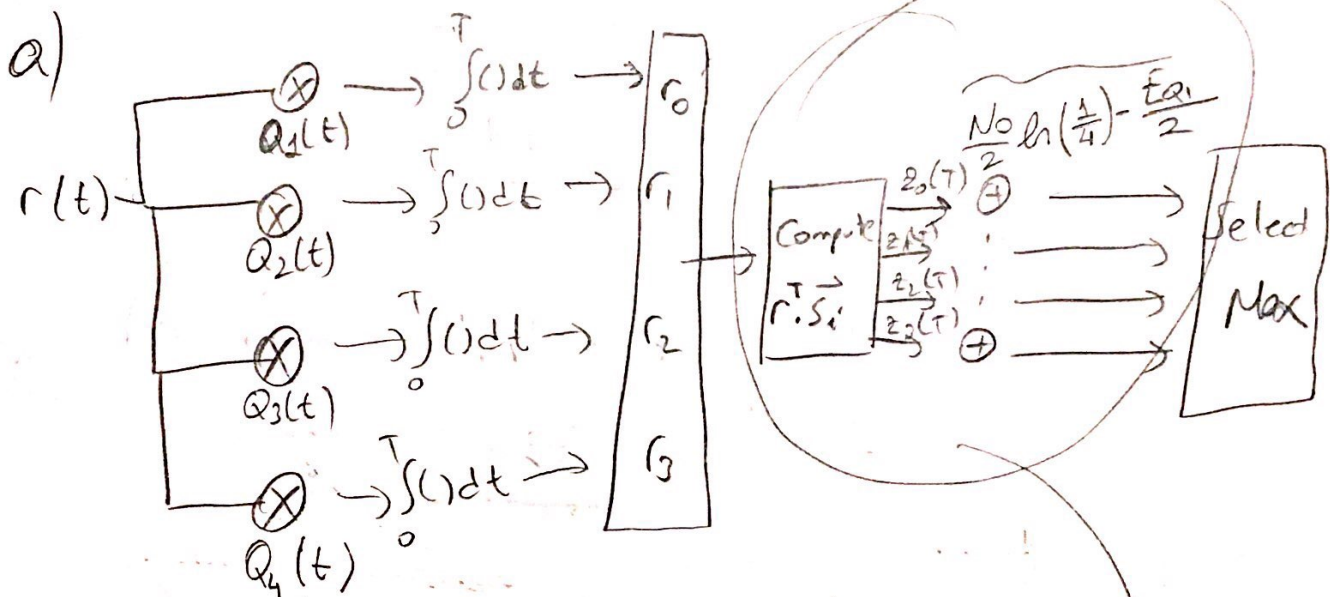 a)
r(t)
Q1(t)
T
∫()dt
0
r0
Q2(t)
T
∫()dt
0
r1
Q3(t)
T
∫()dt
0
r2
Q4(t)
T
∫()dt
0
r3
Compute
r^T.s⃗i
z0(T)
z1(T)
z2(T)
z3(T)
No/2 ln(1/4) - EQ1/2
Select
Max